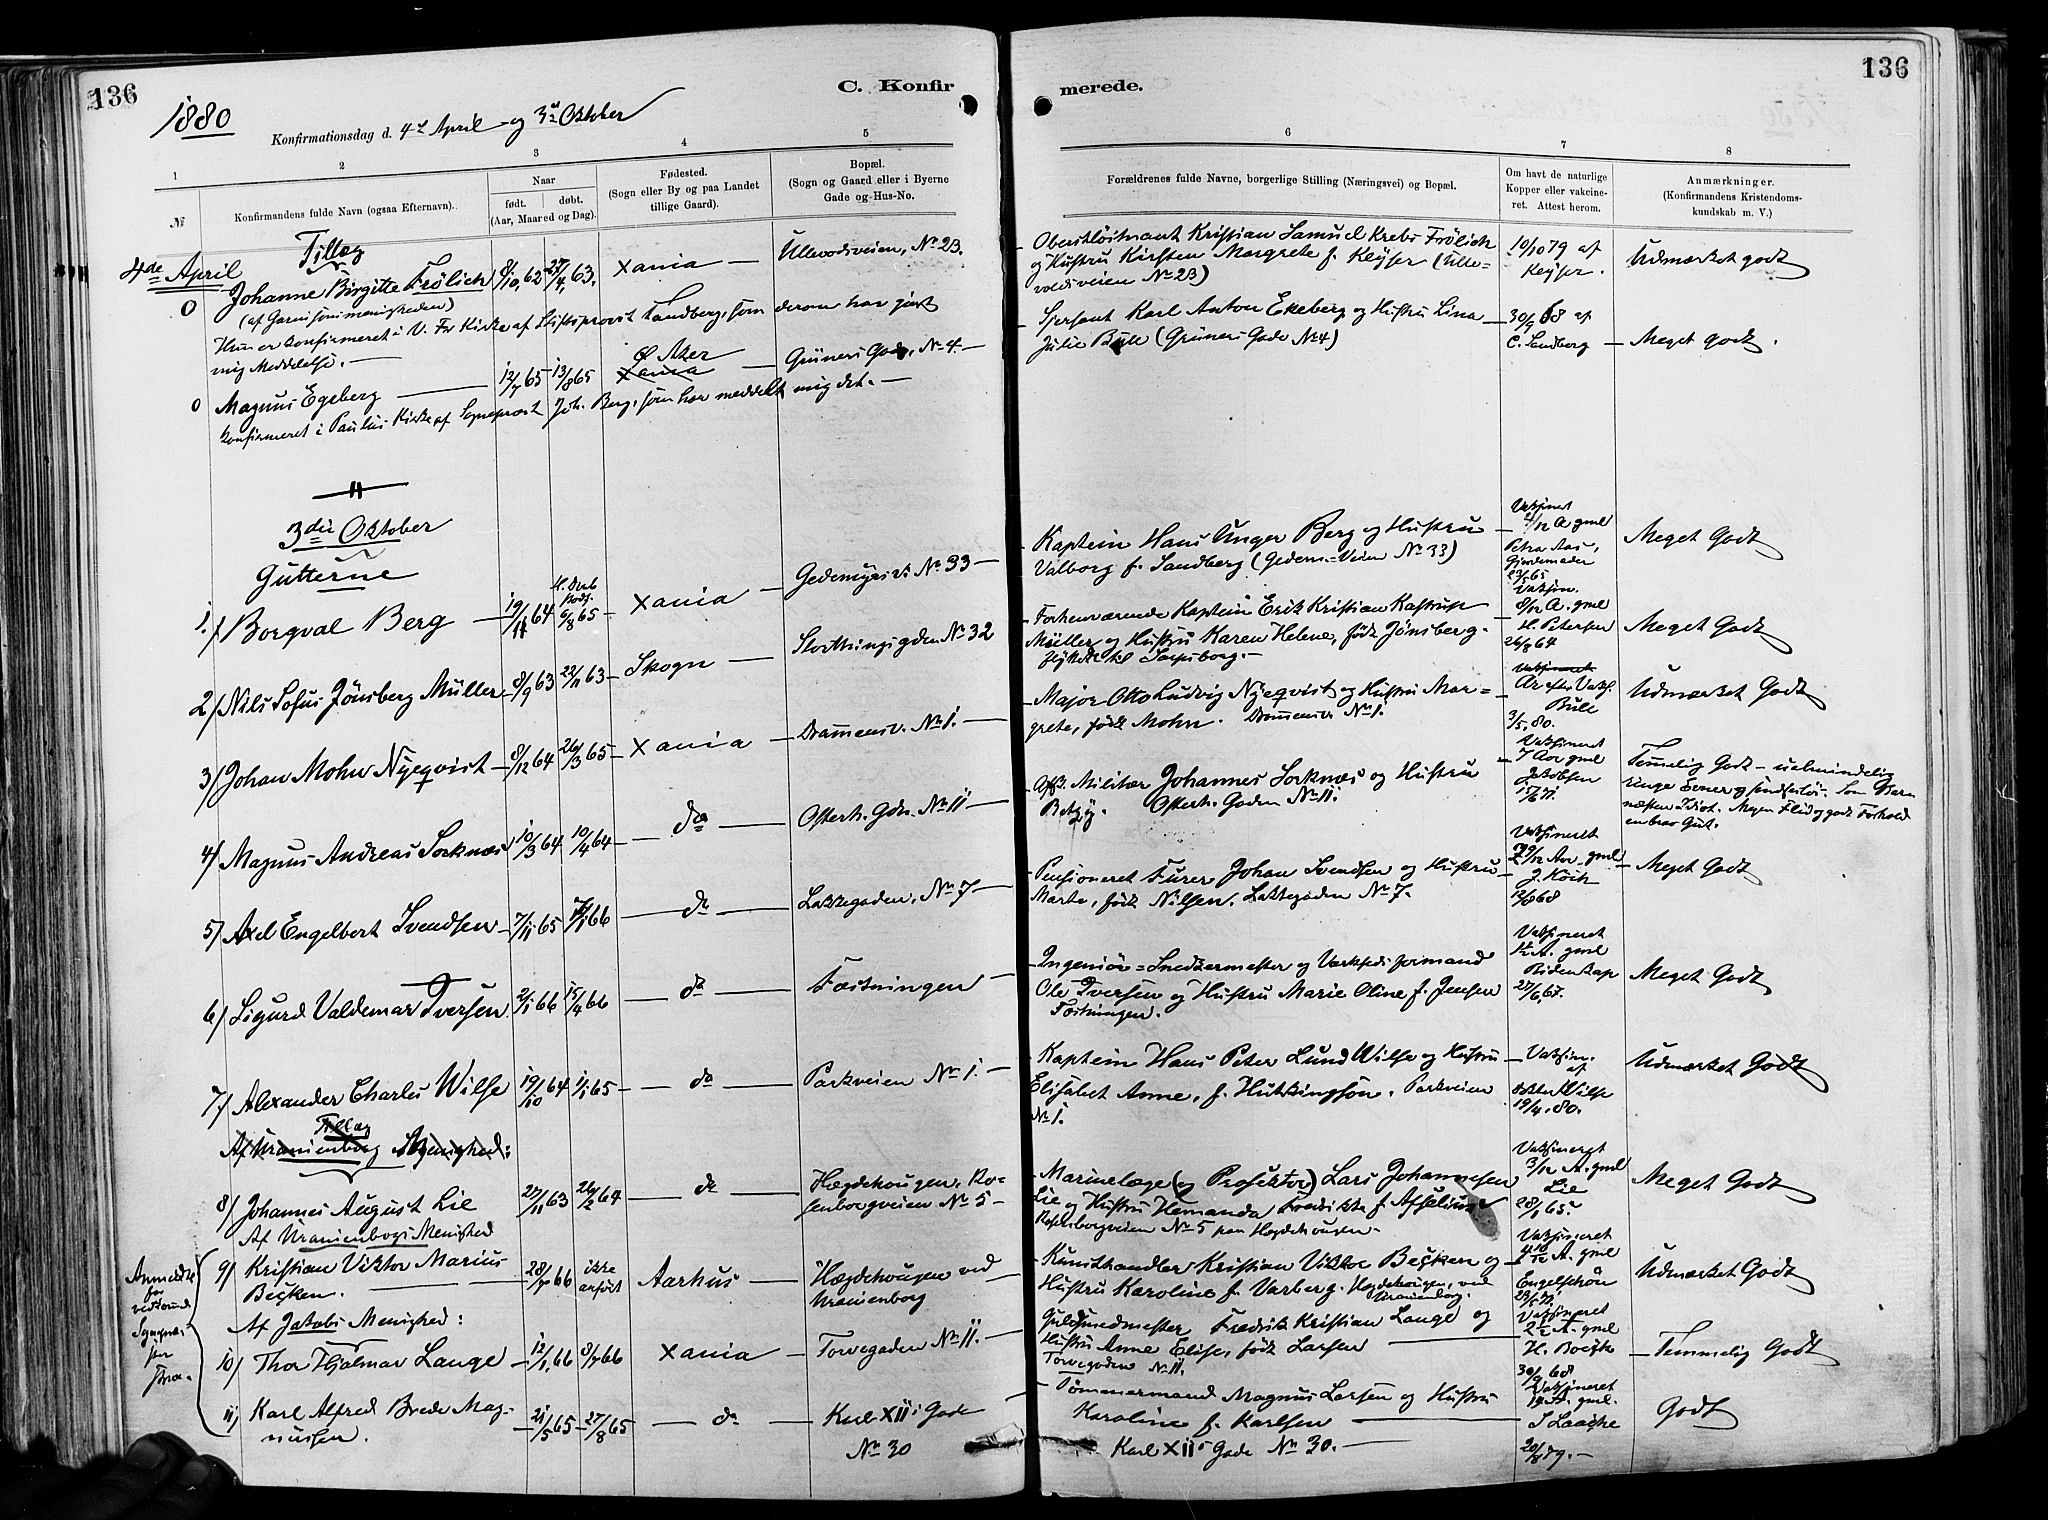 136
1880
C. Konfir
merede.
136
Konfirmationsdag d. 4de April og 3die Oktober
1
2
3
4
5
6
7
8
№
Konfirmandens fulde Navn (ogsaa Efternavn).
Naar
født. døbt.
(Aar, Maaned og Dag).
Fødested.
(Sogn eller By og paa Landet
tillige Gaard).
Bopæl.
(Sogn og Gaard eller i Byerne
Gade og Hus-No.
Forældrenes fulde Navne, borgerlige Stilling (Næringsvei) og Bopæl.
Om havt de naturlige
Kopper eller vakcine-
ret. Attest herom.
Anmærkninger.
(Konfirmandens Kristendoms-
kundskab m. V.)
Tillæg
4de April
0 Johanne Birgitte Frölich 8/10 62 27/4 63. Xania — Ullevoldsveien, No 2B.
(af Garnisonsmenigheden)
Hun er konfirmeret i V. Frs Kirke af Stiftsprovst Landberg, som derom har gjort
mig Meddelelse. —
Oberstløitnant Kristian Samuel Krebs Frölich
og Hustru Kirsten Margrete f. Keyser (Ulle-
voldsveien No 2B)
10/10 79 af
Keyser.
Udmærket godt
0 Magnus Egeberg — 12/7 65 — 13/8 65 Ø Aker Xania — Grüners Gade, No 4. —
Konfirmeret i Paulus Kirke af Sogneprest Joh. Berg, som har meddelt mig det. —
Sjersant Karl Anton Ekeberg og Hustru Lina
Julie Bull (Grüners Gade No 4)
30/9 68 af
C. Sandberg
Meget godt.
3die Oktober
Gutterne
1./ Borgval Berg — 19/11 64 6/8 65 — Xania — Gedemyrsv. No 33 —
Kaptein Hans Unger Berg og Hustru
Valborg f. Sandberg (Gedem.-Veien No 33)
Vaksinet
2/12 A gml
Petra Aas,
Gjordemoder
Meget Godt
2/ Nils Sofus Jönsberg Müller 8/9 63 22/11 63 — Skogn — Storthingsgden No 32
Forhenværende Kaptein Erik Kristian Kastrup
Müller og Hustru Karen Helene, født Jönsberg.
flyttede til Sarpsborg. —
Vaksin.
8/12 A. gml
H. Petersen
26/8 64
Meget Godt
3/ Johan Mohn Nyeqvist — 8/12 64 26/3 65 — Xania — Drammensv. No 1. —
Major Otto Ludvig Nyeqvist og Hustru Mar-
grete, født Mohn. Drammensv No 1.
Ar efter Vaks.
Bull
3/5. 80.
Udmærket Godt
4/ Magnus Andreas Sorknæs 10/3 64 10/4 64 — do — Osterh. Gdn. No 11 —
Militær Johannes Sorknæs og Hustru
Betzy. Osterh. Gaden No 11.
Vaksineret
7 Aar gml
Jakobsen
15/6 71.
Temmelig Godt — ualmindelig
ringe Evner og sindssløv. Som Barn
næsten Idiot. Megen Flid og godt Forhold
en brav Gut.
5/ Axel Engelbert Svendsen — 7/11 65 1/1 66 — do — Lakkegaden, No 7 —
Pensioneret Furer Johan Svendsen og Hustru
Marte, født Nilsen. Lakkegaden No 7.
Vaksineret
Aar gml
J. Koch
12/8 68
Meget Godt
6/ Sigurd Valdemar Iversen 2/1 66 15/4 66 — do — Fæstningen
Ingeniör-Snedkermester og Værkstedsformand
Ole Iversen og Hustru Marie Oline f. Jensen
Fæstningen.
Vaksineret
1½ A. gml
Ridenkap
27/6, 67.
Meget Godt
7/ Alexander Charles Wilse 19/10 64 1/1 65 — do — Parkveien No 1.
Kaptein Hans Peter Lund Wilse og Hustru
Elisabet Anne, f. Hutkingson. Parkveien
No 1.
Vaksin.
af
Doktor Wilse
19/4. 80.
Udmærket Godt
Tillæg
Af Uranienborg Menighed:
8/ Johannes August Lie 27/11 63 26/2 64 — do — Hægdehougen. Ro-
senborgveien No 5 —
Af Uranienborgs Menighed
Marinelæge (og Prosektor) Lars Johannesen
Lie og Hustru Hemanda Fredrikke f Afselius
Rosenborgveien No 5 paa Hægdehougen.
Vaksineret
3/12 A. gml
Lie
28/1 65.
Meget Godt
9/ Kristian Viktor Marius
Beçken. 28/7 66 ikke anført Aarhus — Hægdehougen ved
Uranienborg
Kunsthandler Kristian Viktor Beçken og
Hustru Karoline f. Varberg. Hægdehougen, ved
Uranienborg.
Vaksineret
4 10/12 A. gml
Engelschön
Udmærket Godt
Af Jakobs Menighed:
10/ Thor Hjalmar Lange — 12/1, 66 8/7 66 Xania — Torvegaden No 11. —
Guldsmedmester Fredrik Kristian Lange og
Hustru Anne Elise, født Larsen —
Torvegaden No 11.
Vaksineret
2½ A. gml
H. Boeçk
30/9 68
Temmelig Godt
11/ Karl Alfred Brede Mag-
nussen. — 21/5 65 — 27/8 65 — do — Karl XIIs Gade
No 30
Tömmermand Magnus Larsen og Hustru
Karoline f. Karlsen —
Karl XIIs Gade No 30. —
Vaksineret
A. gml.
S Laache
20/8 79. —
Godt